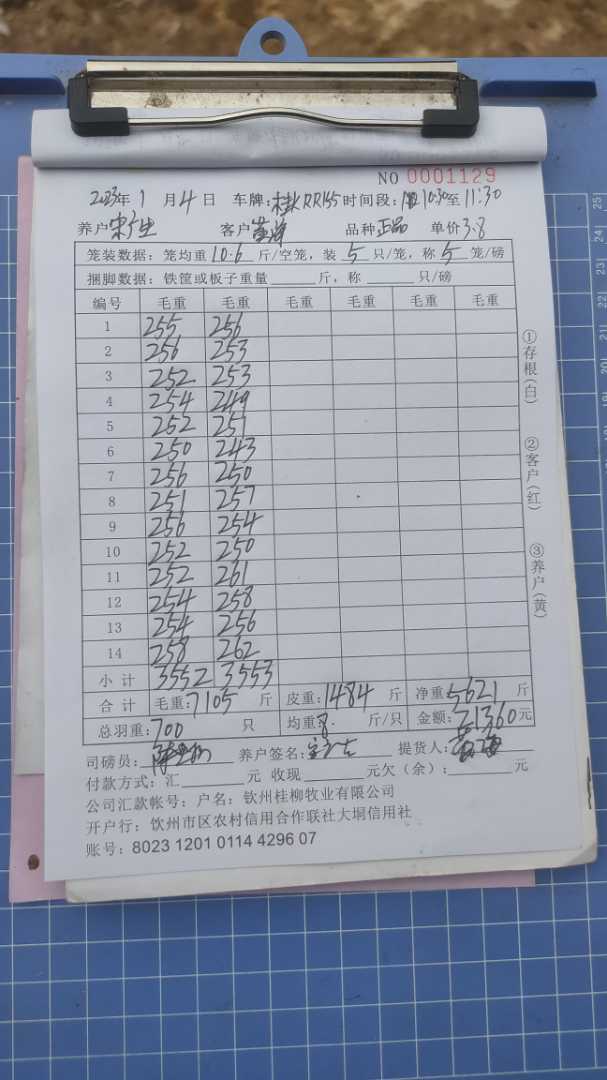 NO 0001129
2023年 1 月 4 日 车牌: 桂 RR155 时间段: 10:30 至 11:30
养户 客户 品种 正品 单价 3.8
笼装数据: 笼均重 10.6 斤/空笼, 装 5 只/笼, 称 5 笼/磅
捆脚数据: 铁筐或板子重量 斤, 称 只/磅
编号 毛重 毛重 毛重 毛重 毛重 毛重
1 255 256
2 256 253
3 252 253
4 254 249
5 252 251
6 250 243
7 256 250
8 251 257
9 256 254
10 252 250
11 252 261
12 254 258
13 254 256
14 258 262
小 计 3552 3553
合 计 毛重: 7105 斤 皮重: 1484 斤 净重: 5621 斤
总羽重: 700 只 均重 8 斤/只 金额: 21360 元
司磅员: 养户签名: 提货人:
付款方式: 汇 元 收现 元欠 (余): 元
公司汇款帐号: 户名: 钦州桂柳牧业有限公司
开户行: 钦州市区农村信用合作联社大垌信用社
账号: 8023 1201 0114 4296 07
①存根(白)
②客户(红)
③养户(黄)
25
24
23
22
21
20
19
18
17